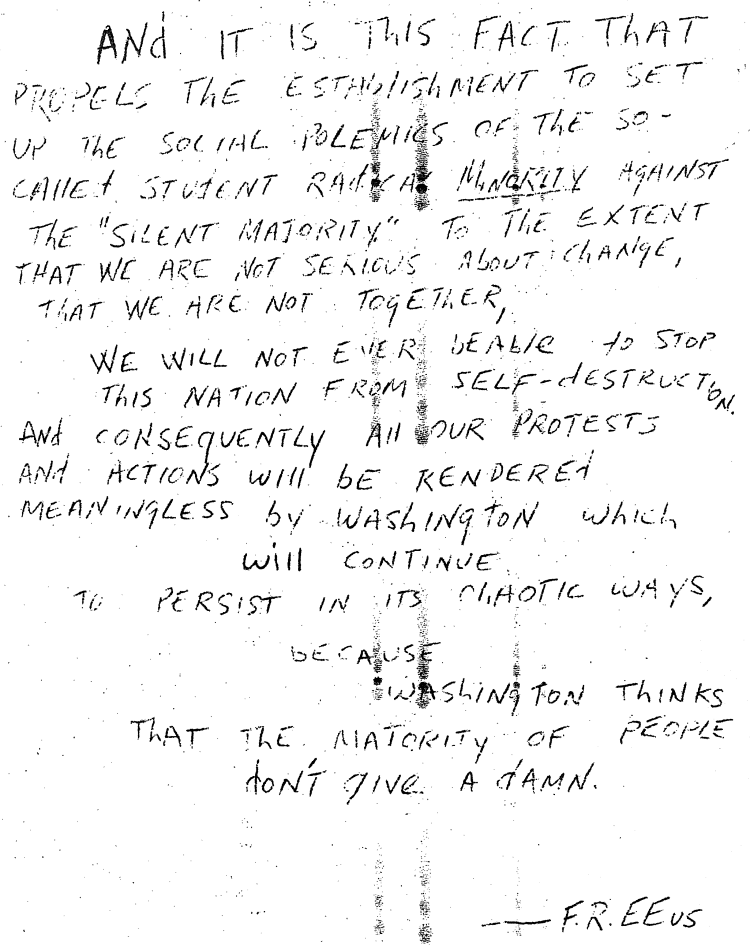 AND IT IS THIS FACT THAT
PROPELS THE ESTABLISHMENT TO SET
UP THE SOCIAL POLEMICS OF THE SO-
CALLED STUDENT RADICAL MINORITY AGAINST
THE "SILENT MAJORITY." TO THE EXTENT
THAT WE ARE NOT SERIOUS ABOUT CHANGE,
THAT WE ARE NOT TOGETHER,
WE WILL NOT EVER BE ABLE TO STOP
THIS NATION FROM SELF-DESTRUCTION.
AND CONSEQUENTLY All OUR PROTESTS
AND ACTIONS WIll bE RENDERED
MEANINGLESS by WASHINGTON which
will CONTINUE
TO PERSIST IN ITS CHAOTIC WAYS,
bECAUSE
WASHINGTON THINKS
THAT THE MAJORITY OF PEOPLE
dON'T GIVE A dAMN.
— F.R.EEUS